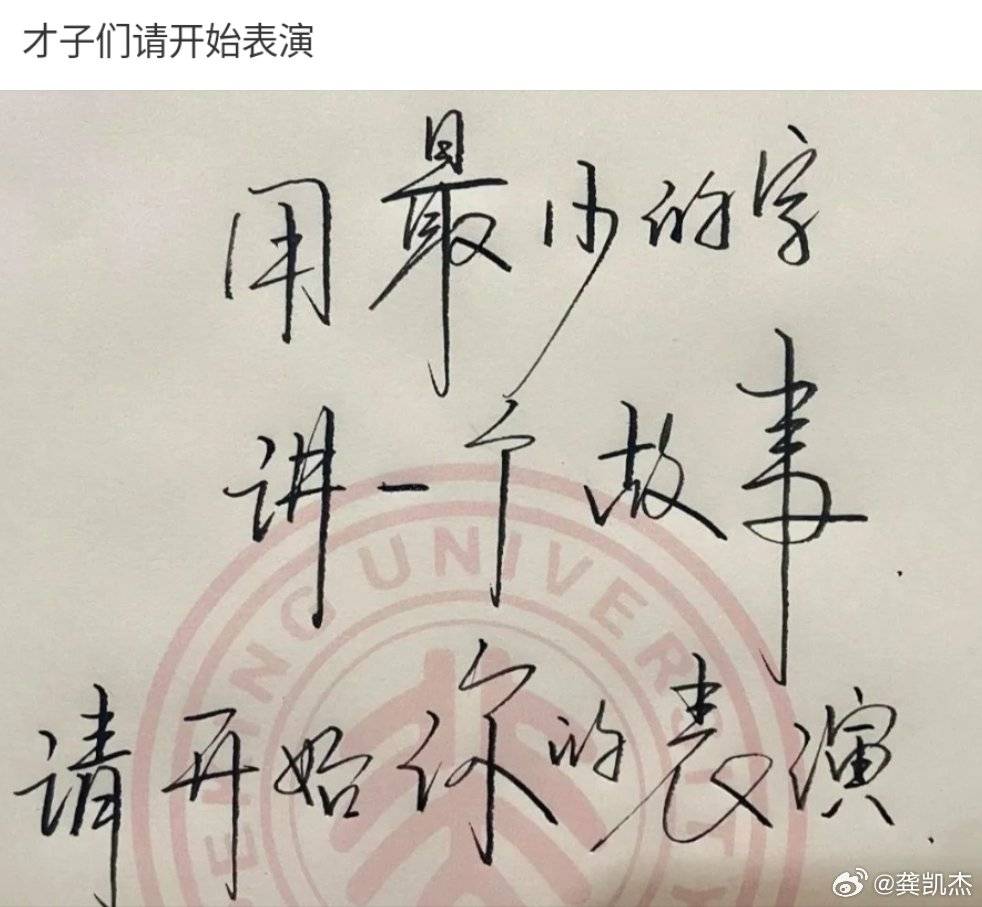 才子们请开始表演
用最少的字
讲一个故事.
请开始你的表演.
EKING UNIVERSITY
@龚凯杰